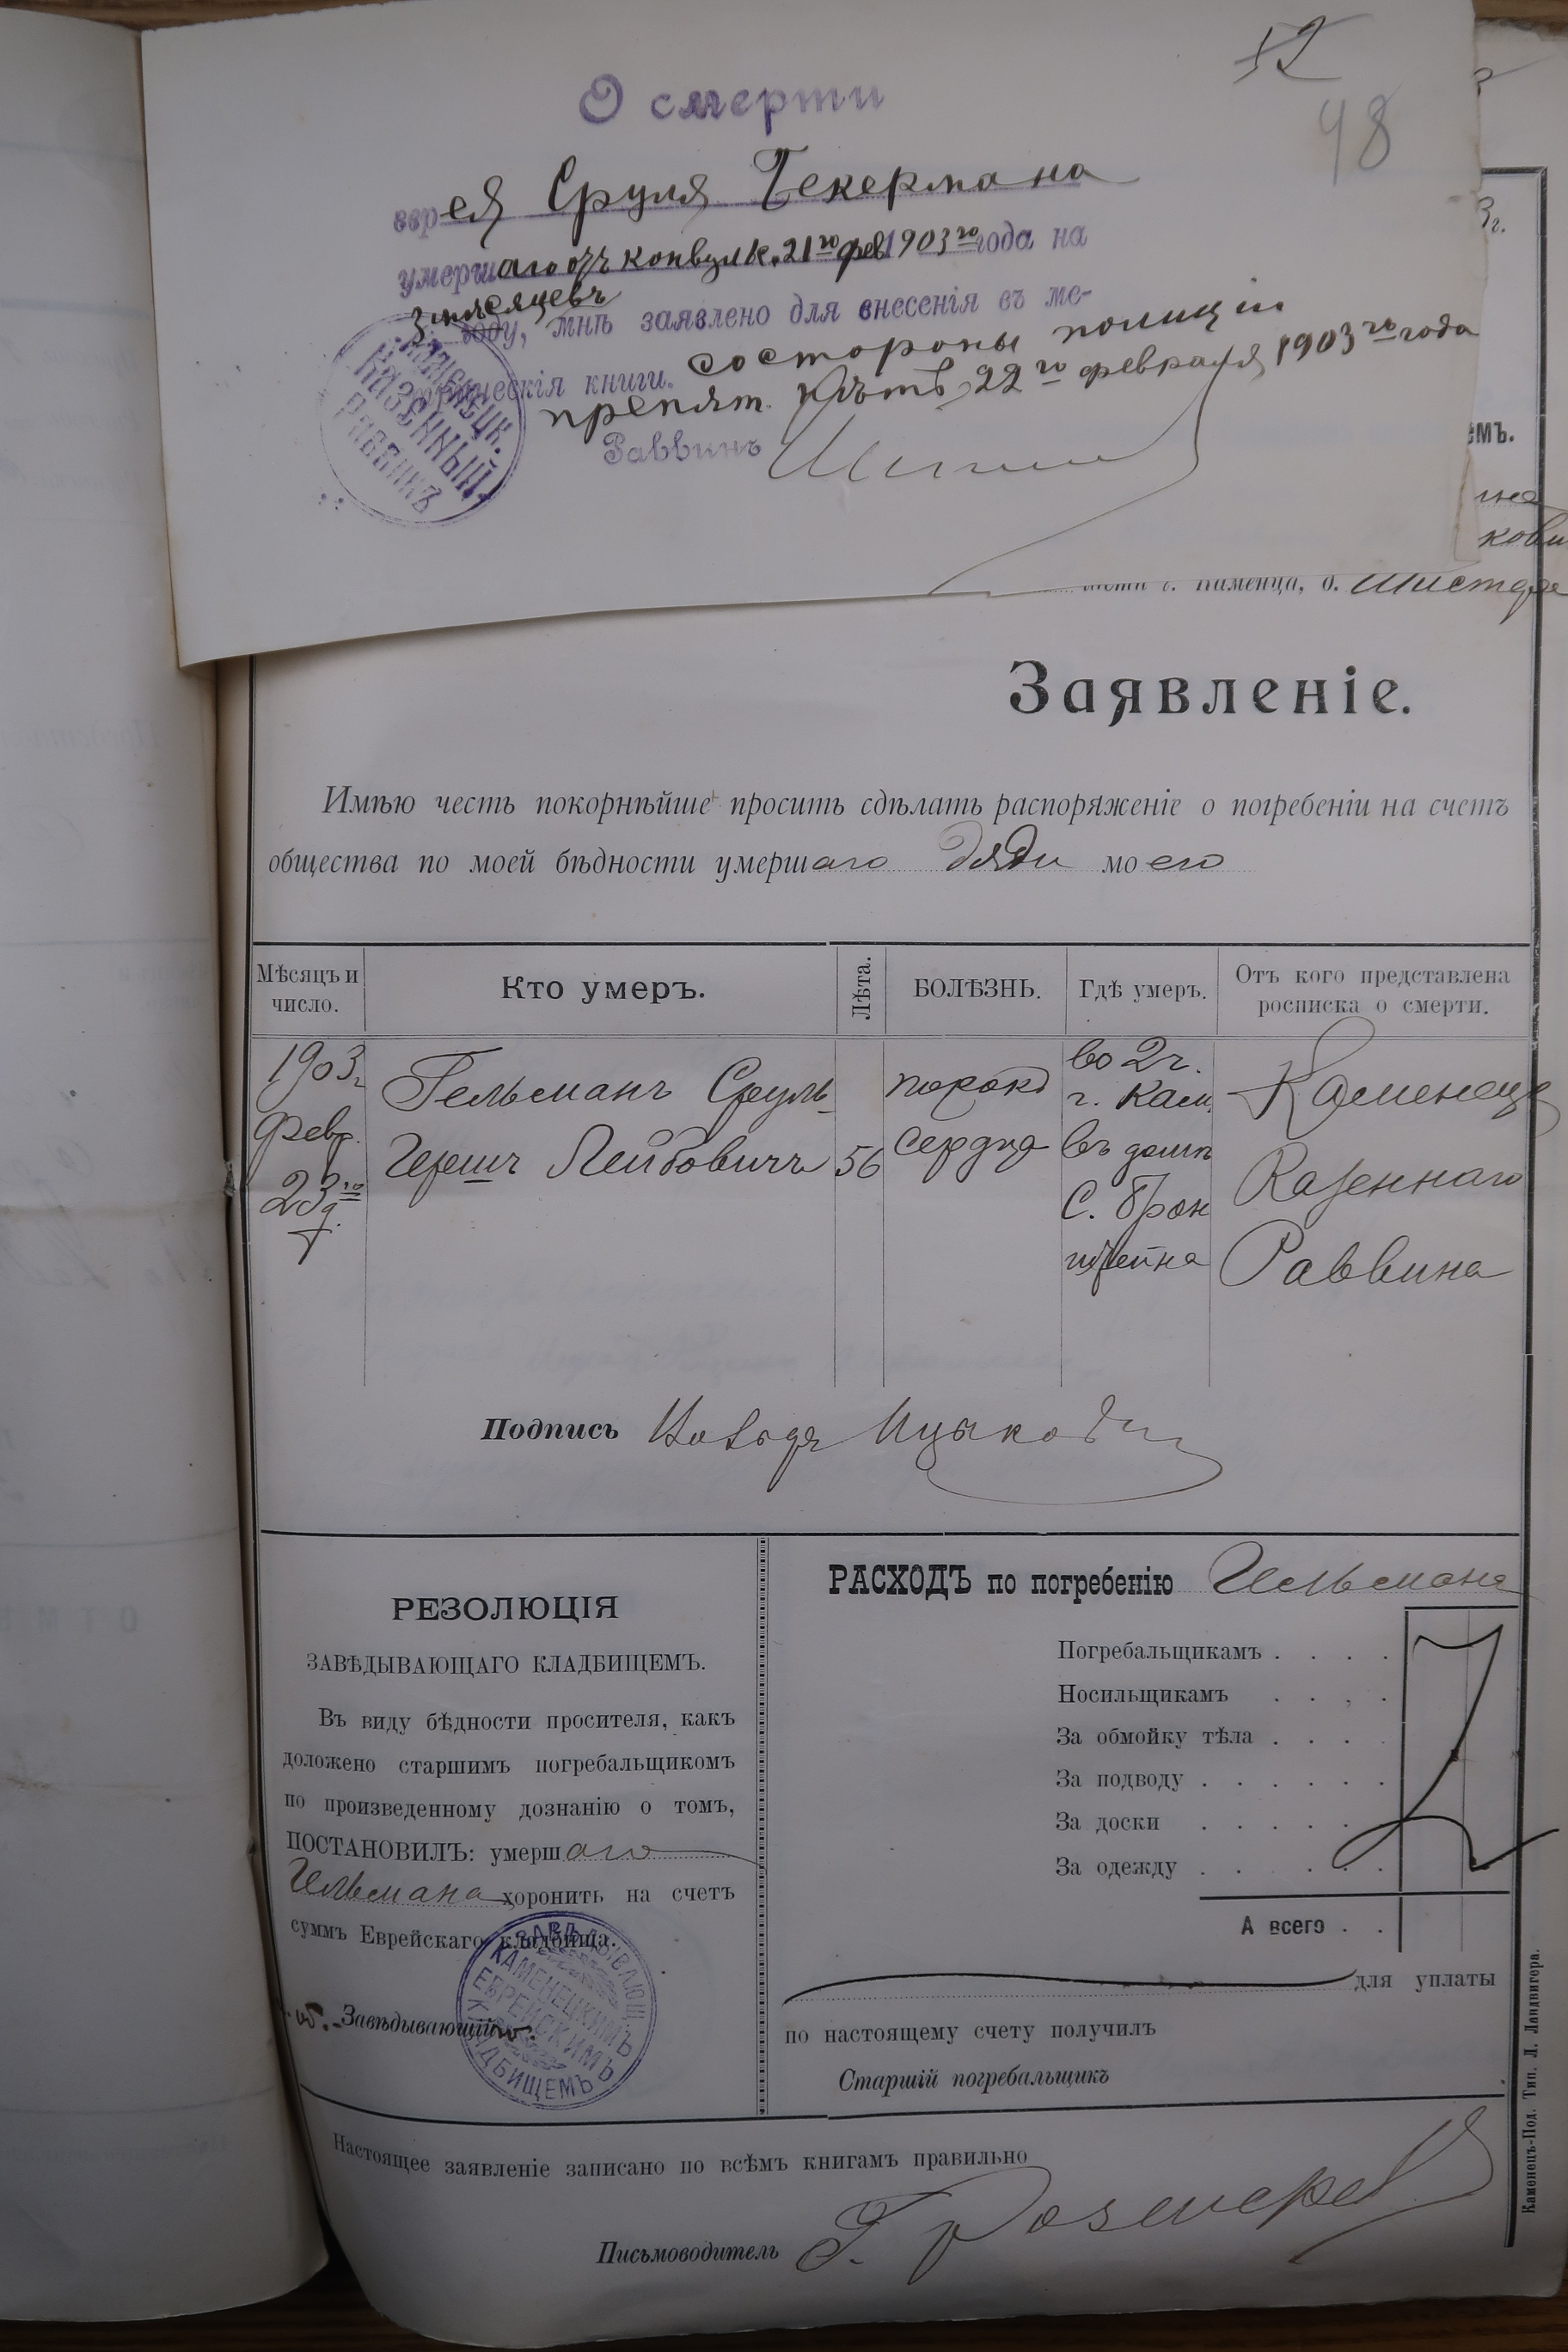 52
48
О смерти
еврея Сруля Бекермана
умершаго отъ конвульк. 21го фев 1903го года на
3 мѣсяцевъ
году, мнѣ заявлено для внесенія въ ме-
трическія книги. со стороны полиціи
препят. нѣтъ 22го февраля 1903го года
Раввинъ
КАМЕНЕЦК.
КАЗЕННЫЙ
РАВВИНЪ
3г.
емъ.
г. Каменца, д.
Заявленіе.
Имѣю честь покорнѣйше просить сдѣлать распоряженіе о погребеніи на счетъ
общества по моей бѣдности умершаго дяди моего
Мѣсяцъ и число. Кто умеръ. Лѣта. БОЛѢЗНЬ. Гдѣ умеръ. Отъ кого представлена росписка о смерти.
1903г. Гельманъ Сруль- порокъ во 2 ч. Каменецк
февр. Гершъ Лейбовичъ 56 сердца г. Кам. Казеннаго
23го д. въ домѣ Раввина
С. Брон
штейна
Подпись Ицкови
РЕЗОЛЮЦІЯ
ЗАВѢДЫВАЮЩАГО КЛАДБИЩЕМЪ.
Въ виду бѣдности просителя, какъ
доложено старшимъ погребальщикомъ
по произведенному дознанію о томъ,
ПОСТАНОВИЛЪ: умершаго
Гельмана хоронить на счетъ
суммъ Еврейскаго кладбища.
Завѣдывающій
ЗАВѢДЫВАЮЩ.
КАМЕНЕЦКИМЪ
ЕВРЕЙСКИМЪ
КЛАДБИЩЕМЪ
РАСХОДЪ по погребенію Гельмана
Погребальщикамъ . . . .
Носильщикамъ . . . .
За обмойку тѣла . . . .
За подводу . . . . . .
За доски . . . . .
За одежду . . . .
А всего . .
для уплаты
по настоящему счету получилъ
Старшій погребальщикъ
Настоящее заявленіе записано по всѣмъ книгамъ правильно
Письмоводитель Г.
Каменецъ-Под. Тип. Л. Ландвигера.